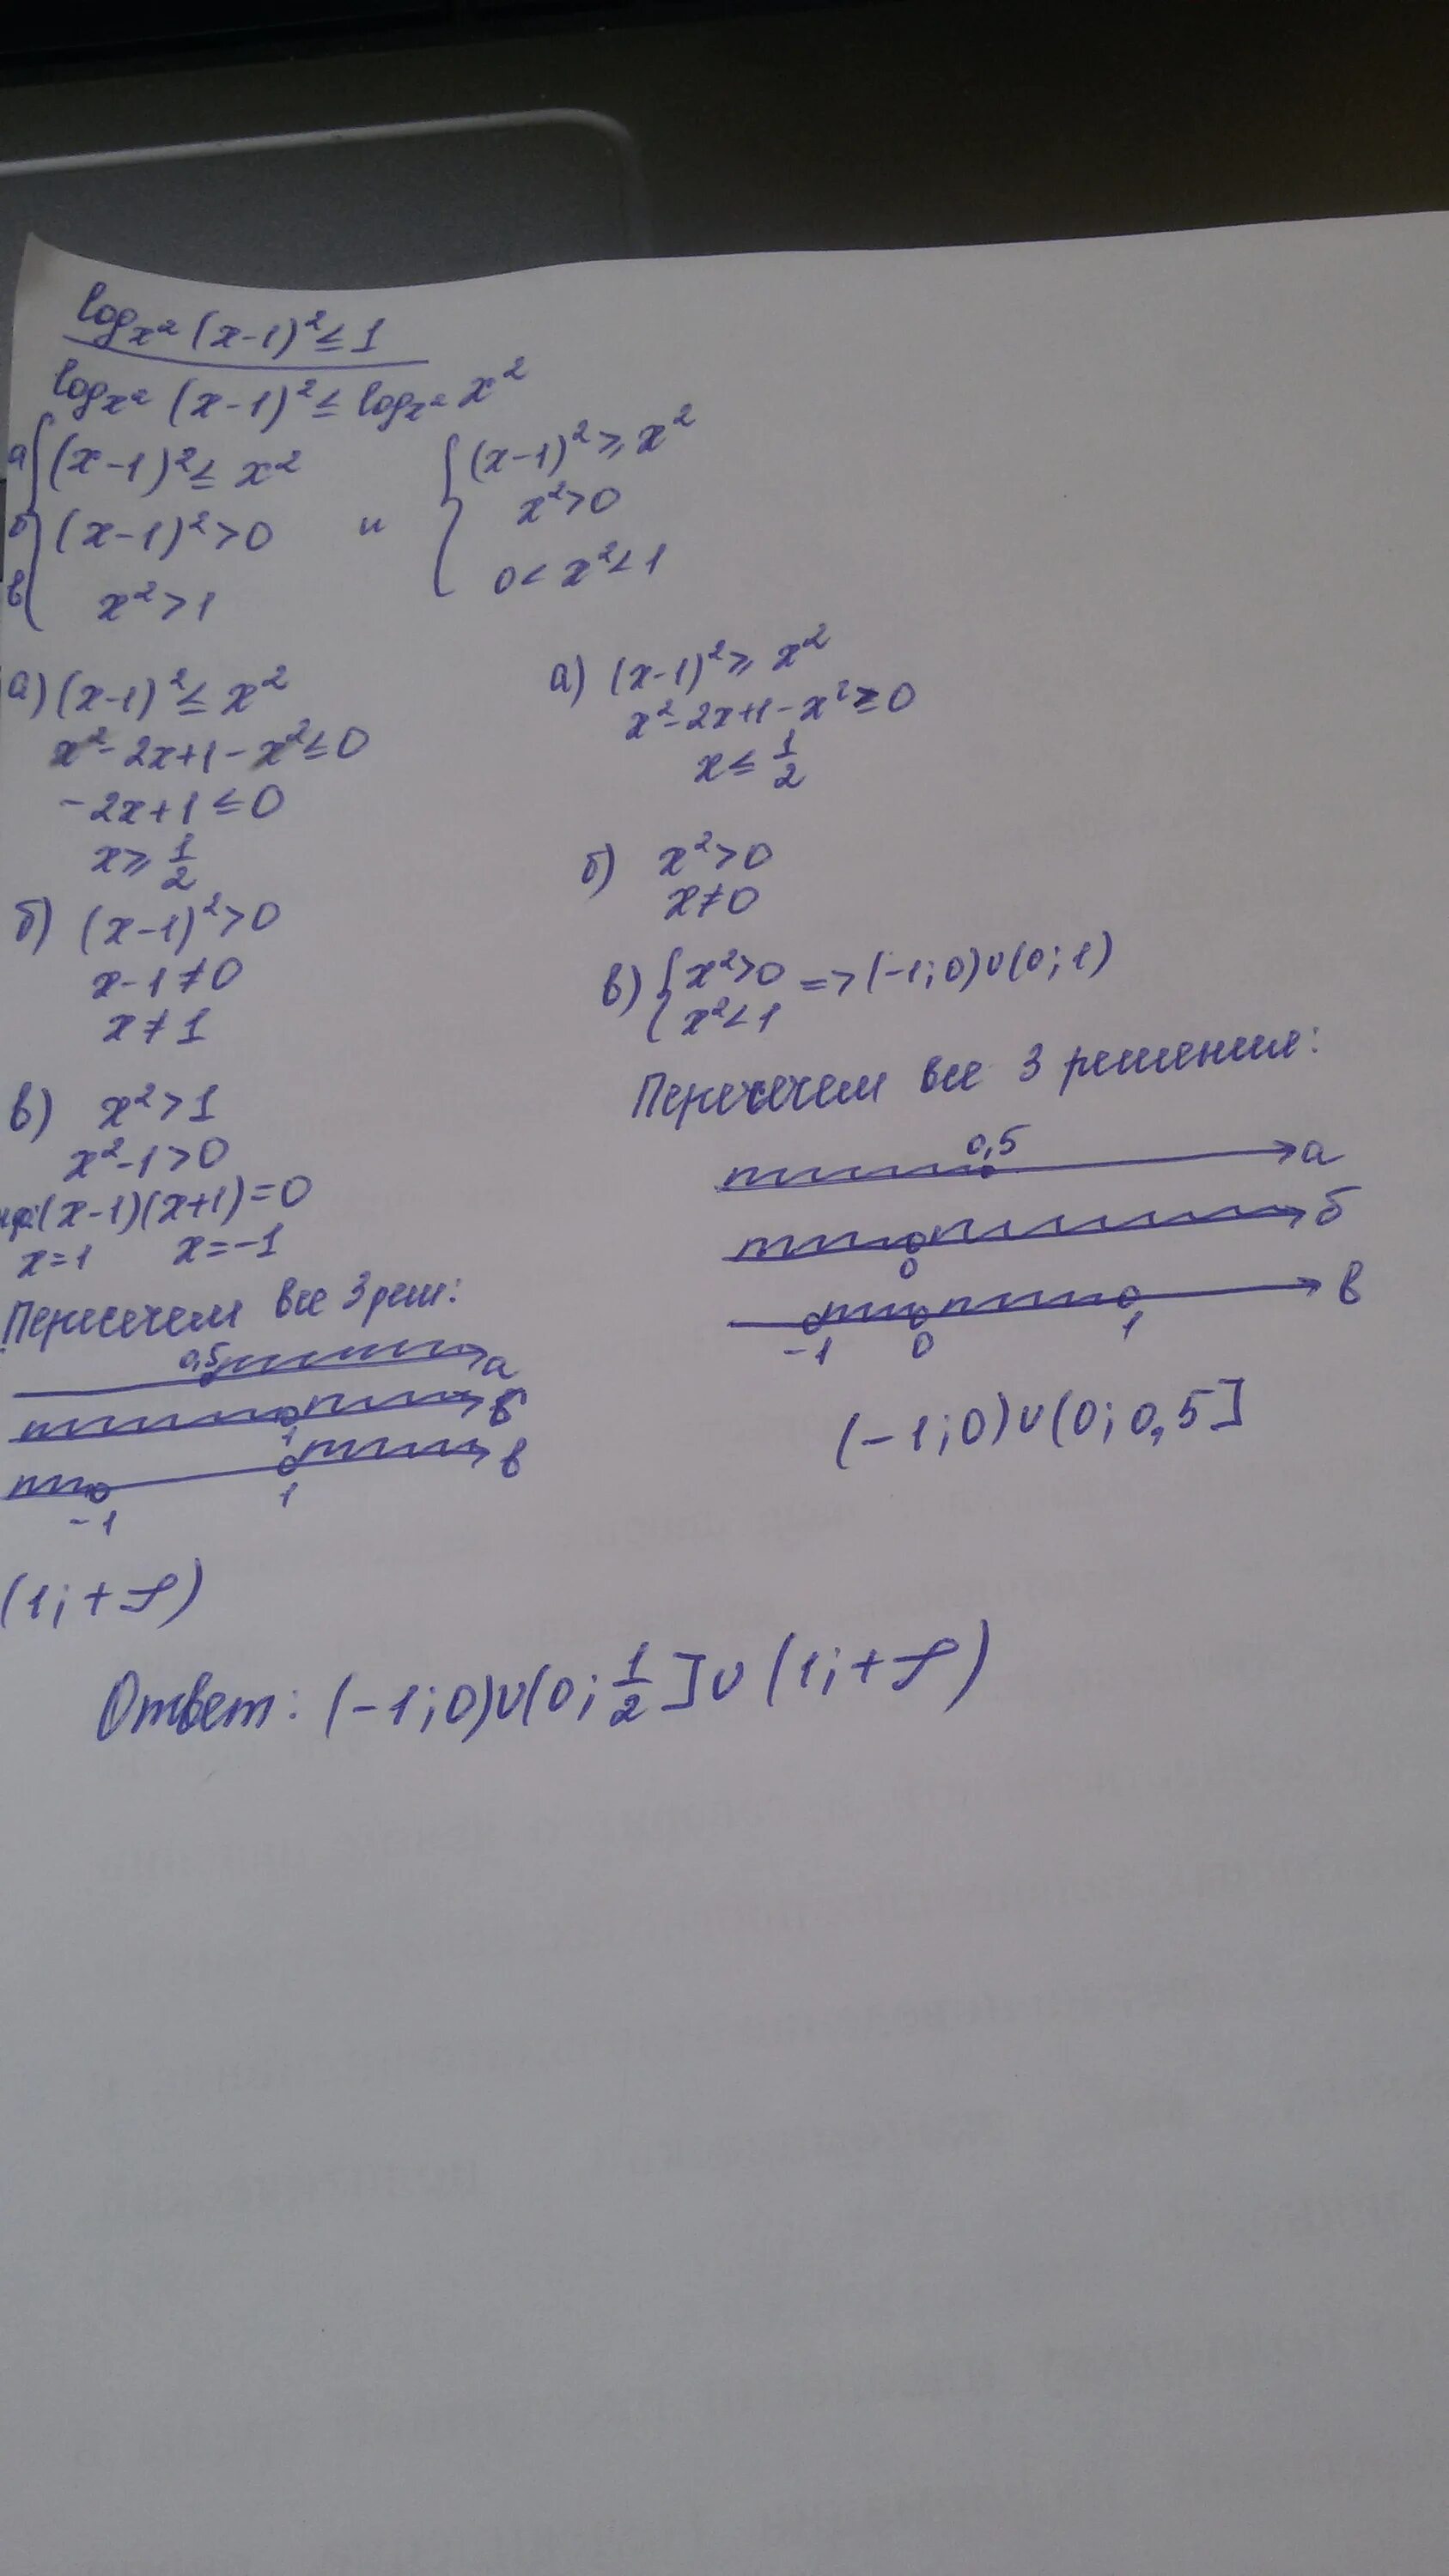 log_{x²} (x-1)² ≤ 1
log_{x²} (x-1)² ≤ log_{x²} x²
а (x-1)² ≤ x²
б (x-1)² > 0
в x² > 1
и
(x-1)² ≥ x²
x² > 0
0 < x² < 1
а) (x-1)² ≤ x²
x² - 2x + 1 - x² ≤ 0
-2x + 1 ≤ 0
x ≥ 1/2
б) (x-1)² > 0
x - 1 ≠ 0
x ≠ 1
в) x² > 1
x² - 1 > 0
(x-1)(x+1) = 0
x = 1 x = -1
Пересечем все 3 реш:
0,5 а
1 б
-1 1 в
(1; +∞)
а) (x-1)² ≥ x²
x² - 2x + 1 - x² ≥ 0
x ≤ 1/2
б) x² > 0
x ≠ 0
в) { x² > 0
x² < 1 => (-1; 0) ∪ (0; 1)
Пересечем все 3 решения:
0,5 а
0 б
-1 0 1 в
(-1; 0) ∪ (0; 0,5]
Ответ: (-1; 0) ∪ (0; 1/2] ∪ (1; +∞)